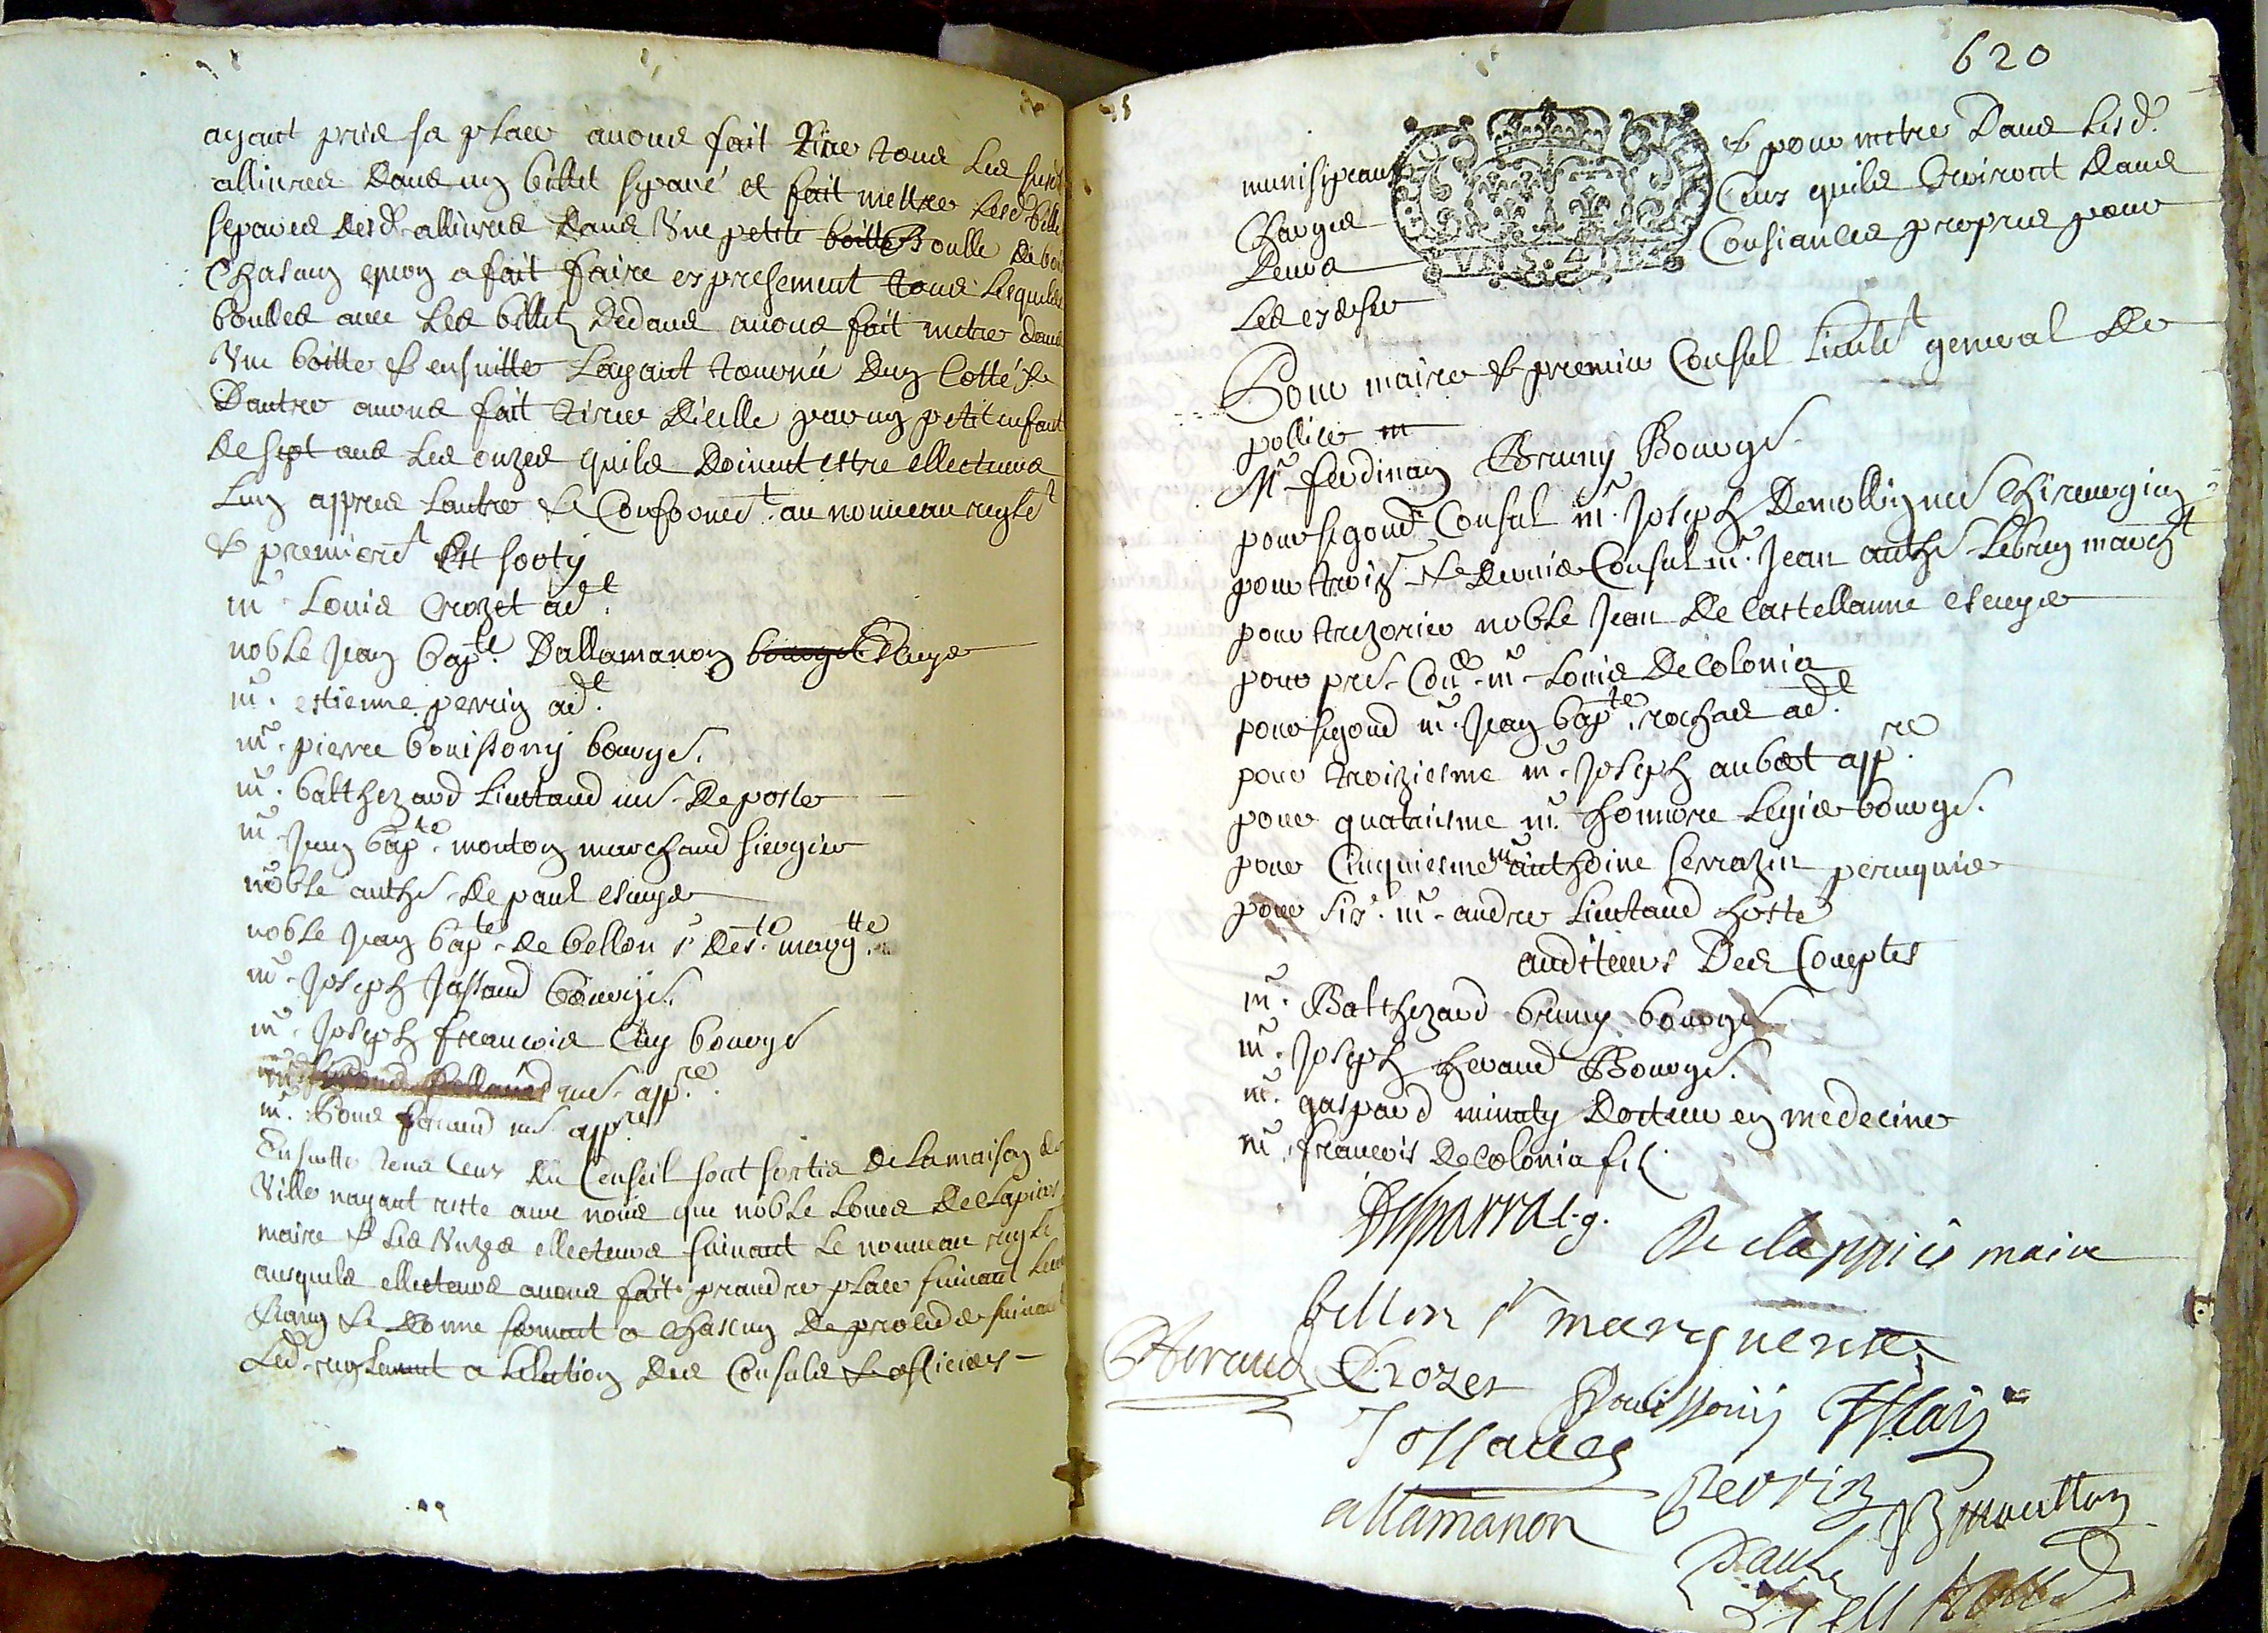 ayant pris sa place avons fait tire tous les susd
allivres dans un billet separé et fait mettre lesd bille
separes desd allivres dans une petite boitte Boulle de boi
Chasun quon a fait faire espresement tous lesquels
boulles avec les billets dedans avons fait metre dans
une boitte & ensuitte layant tourné dun costé &
dautre avons fait tirer dicelle par un petit enfant
de sept ans les onzes quils doivent estre ellecteurs
lun appres lautre & Conformet au nouveau reglet
& premieret est sorty
mr Louis Crozet adt
noble Jean bapte Dallamanon bourgs Escuyer
mr estienne perrin adt
mr pierre bouissony bourgs
mr balthezard Lieutaud me de poste
mr Jean bapte mouton marchand siergier
noble anthe de paul escuyer
noble Jean bapte de bellon sr de ste margtte
mr Joseph Jassaud bourgs
mr Joseph francois Clay bourgs
me appre
mr me appre
Ensuitte tous ceux du Conseil sont sortis de la maison de
ville nayant reste avec nous que noble Louis de Clapiers
maire & les unzes ellecteurs suivant le nouveau regle
ausquels ellecteurs avons fait prandre place suivant leur
Rang & donne serment a chascun de proceder suivant
led reglement a lelection des Consuls & officiers
620
munisipeaux & pour metre dans lesd
Charges Ceux quils Croiront dans
Leurs Consiances propres pour
les exerser
VN S. 4 DE
Pour maire & premier Consul lieutet general de
pollice m
Mr ferdinan Bruny Bourgs
pour segond Consul mr Joseph Demollignes Chirurgien
pour trois & dernier Consul mr Jean anthe Lebrun marcht
pour trezorier noble Jean de Castellanne escuyer
pour pre Coner mr Louis de Colonia
pour segond mr Jean bapte rochas adt
pour troiziesme mr Joseph aubert appre
pour quatriesme mr honnore Legier bourgs
pour Cinquiesme mr anthoine serrazin peruquier
pour six mr andre Lieutaud hoste
auditeurs Des Comptes
mr Balthezard bruny bourgs
mr Joseph heraud Bourgs
mr gaspard minuty docteur en medecine
mr francois de Colonia fils
Desparra l.g.
De clappiers maire
bellon sr marguerite
Heraud Crozet Bouissony Clay
Jassaud
Perrin
allamanon
JB moutton
Paul